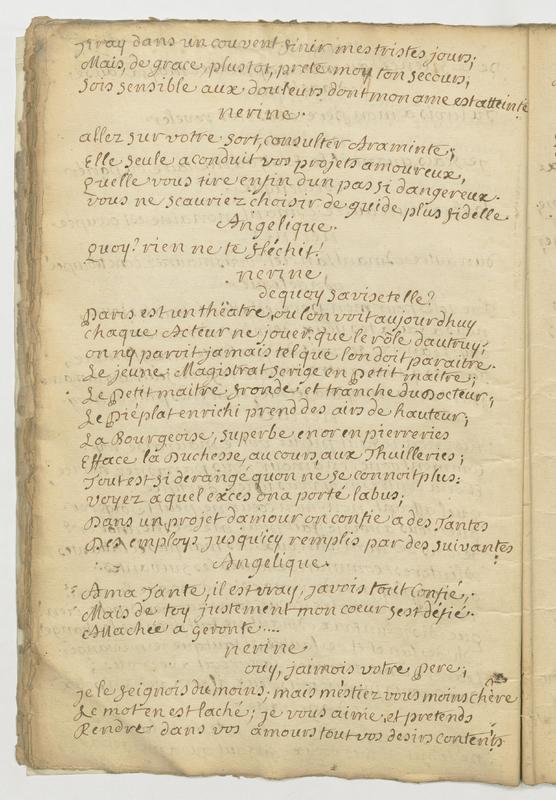 jiray dans un couvent finir mes tristes jours;
Mais, de grace, plustot, prete moy ton secours,
Sois sensible aux douleurs dont mon ame est atteinte
nerine.
allez sur votre sort, consulter Araminte;
Elle seule a conduit vos projets amoureux,
quelle vous tire enfin dun pas si dangereux.
vous ne scauriez choisir de guide plus fidelle
Angelique.
quoy? rien ne te fléchit!
nerine,
dequoy savisetelle?
Paris est un theatre, ou lon voit aujourdhuy
chaque Acteur ne jouer, que le rôle dautruy;
on ny paroit jamais tel que lon doit paraitre.
Le jeune Magistrat serige en Petit maitre;
Le Petit maitre fronde, et tranche du Docteur;
Le Piéplat enrichi prend des airs de hauteur;
La Bourgeoise, superbe en or en pierreries
Efface la Duchesse, au cours, aux Thuilleries;
Tout est si derangé quon ne se connoit plus:
voyez aquel exces on a porté labus;
Dans un projet damour on confie a des Tantes
Des employs jusquicy remplis par des suivantes
Angelique.
Ama Tante, il est vray, javois tout confié,
Mais de toy justement mon coeur sest défié.
Attachée a geronte....
nerine
ouy, jaimois votre Pere;
je le feignois du moins; mais méstiez vous moins chère
Le mot en est laché; je vous aime, et pretends
Rendre dans vos amours tout vos desirs contents